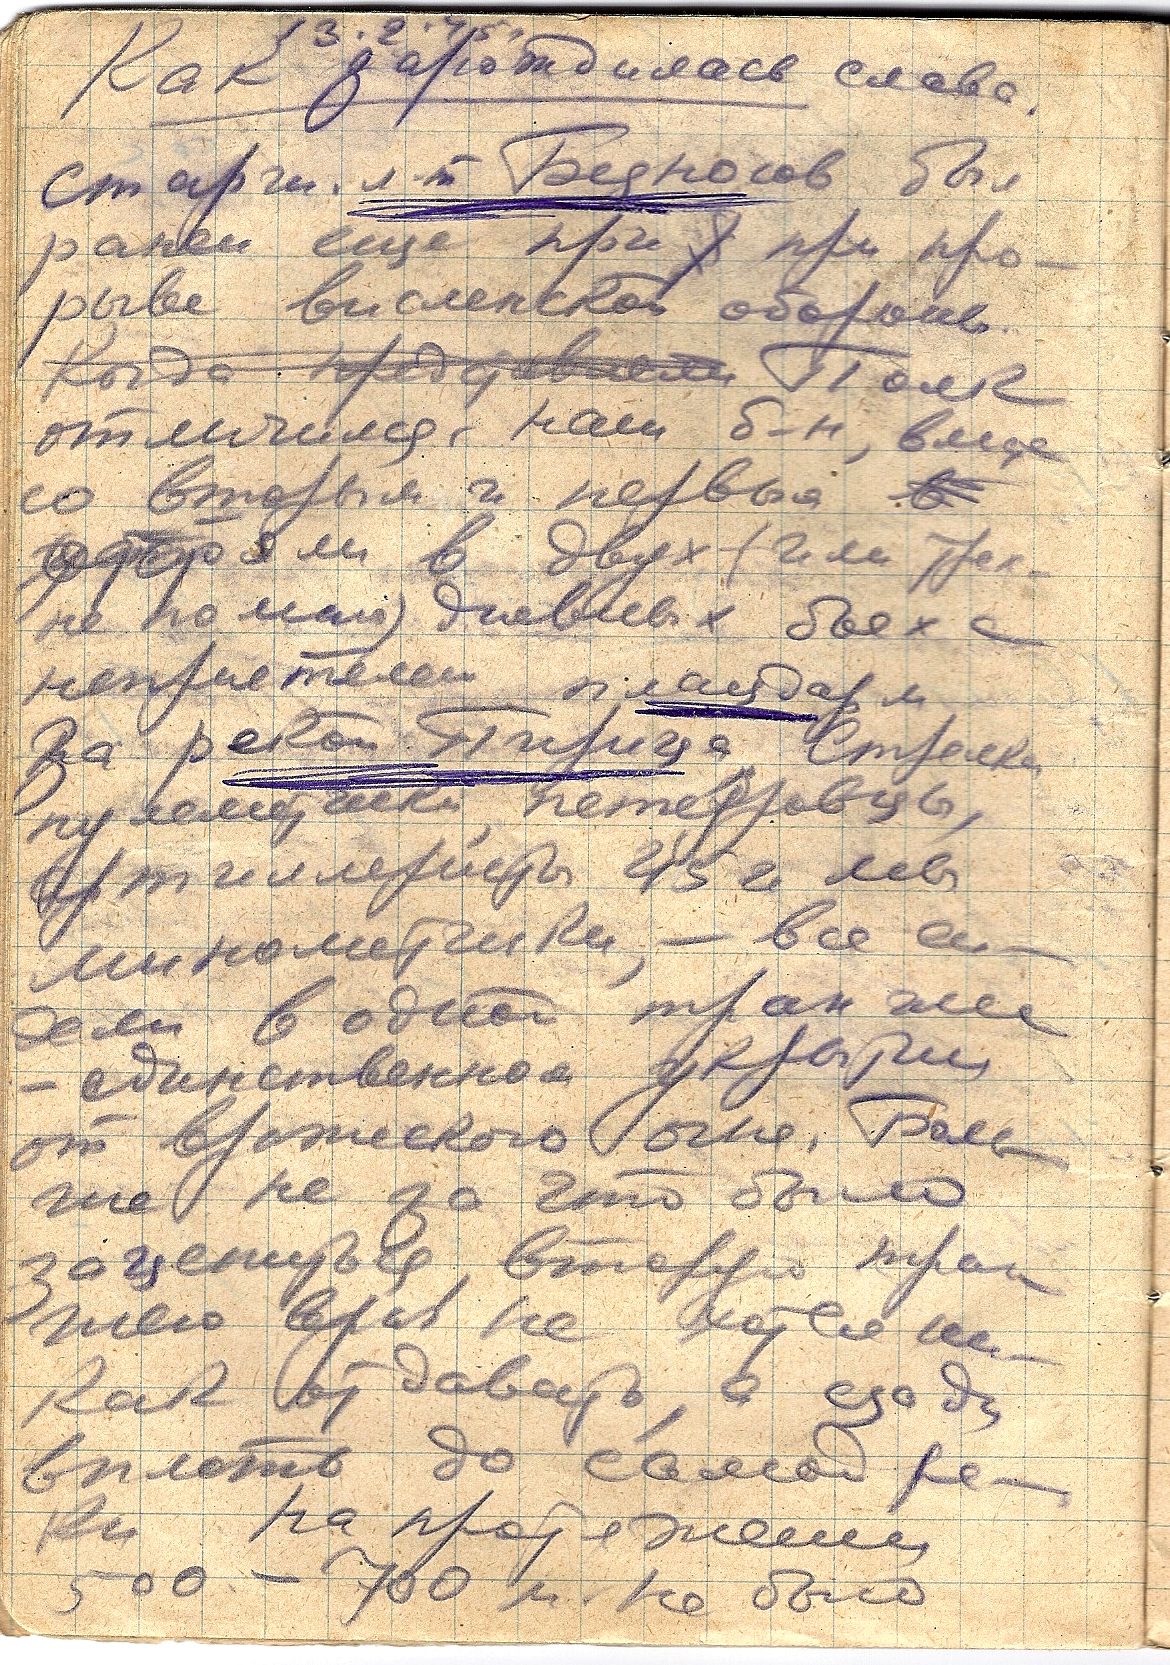 13.2.45.
Как зарождилась слава.
Старш. л-т Бедносов был
ранен еще при при про-
рыве висленской обороны.
Когда Полк
отличился. наш б-н, вместе
со вторым и первым в
в двух (или трех -
не помню) дневных боях с
неприятелем плацдарм
за рекой Пилица. Стрелки
пулеметчики, петеэровцы,
артиллеристы 45 и мы
минометчики, - все си-
дели в одной траншее
- единственное укрытие
от вражеского огня. Боль
ше не за что было
зацепиться, вторую тран
шею враг не хотел ни-
как отдавать, а сзади
вплоть до самой ре-
ки на протяжении
500 - 700 м. не было